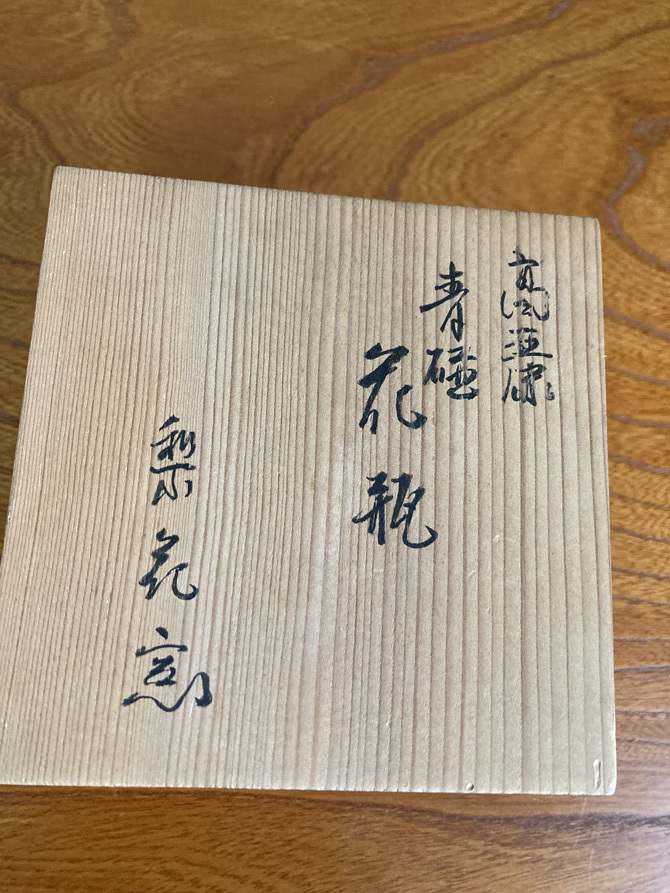 高
青磁
花瓶
梨花窯